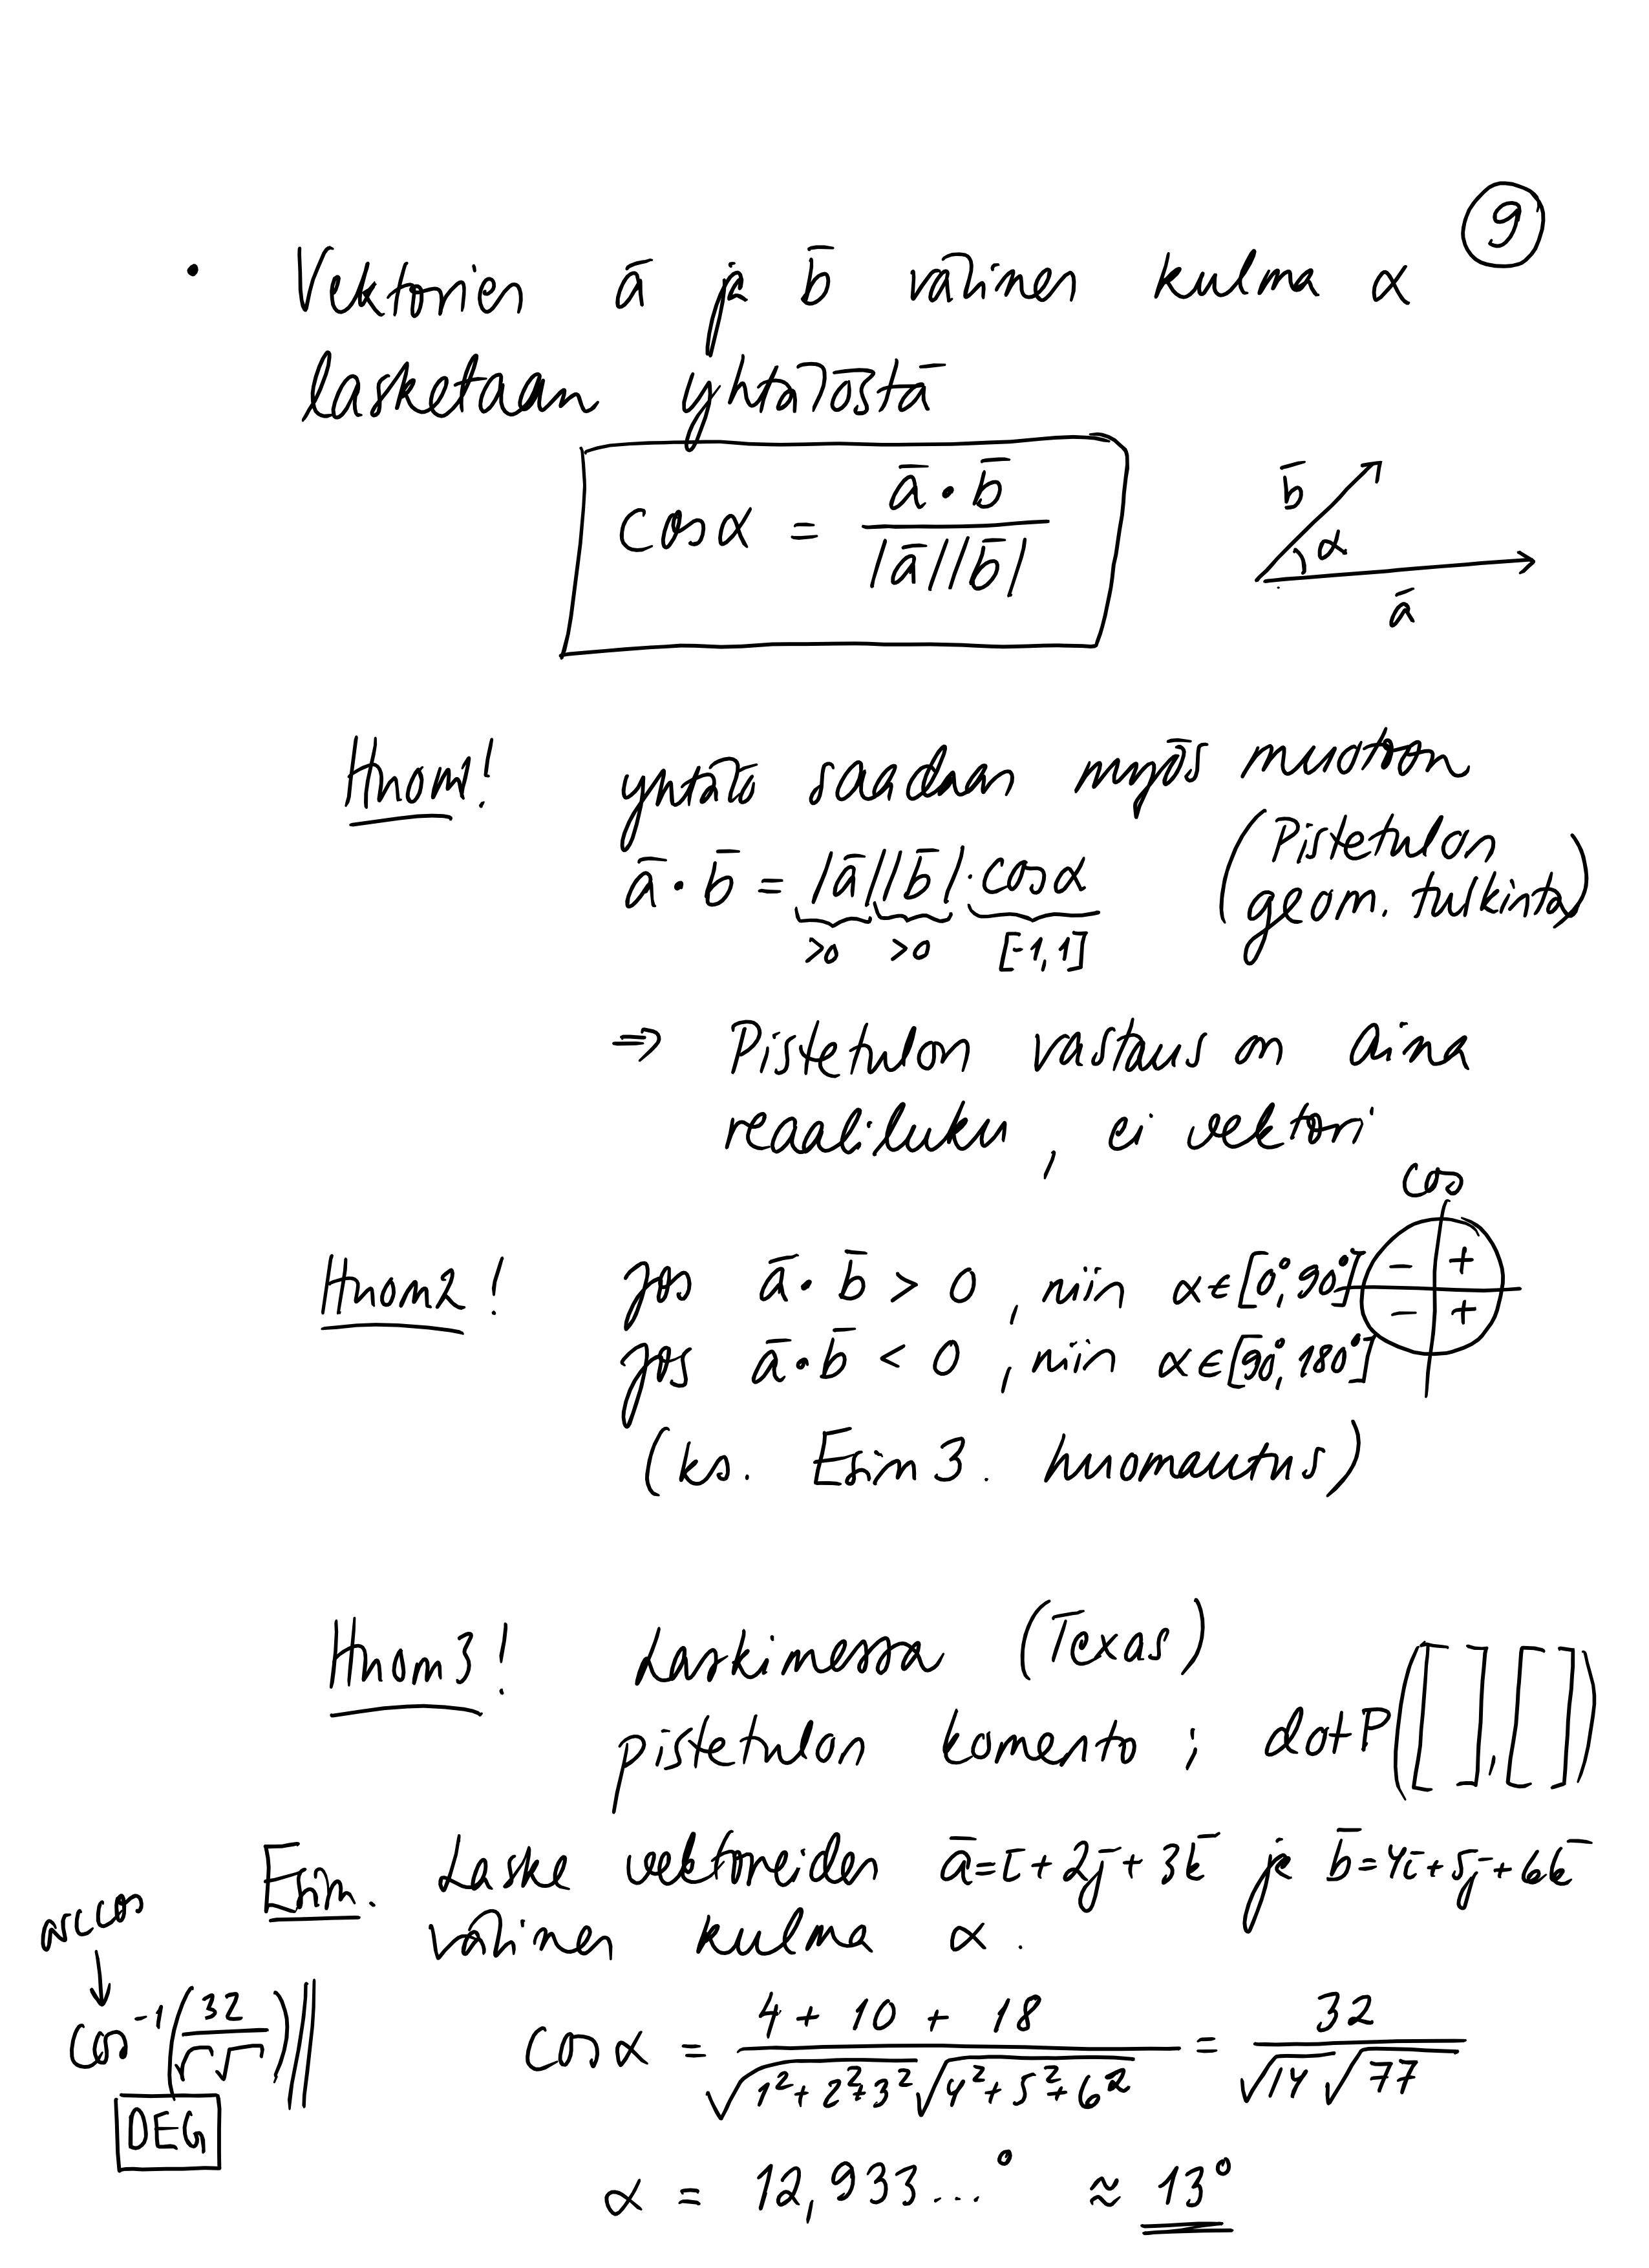 9
• Vektorien ā ja b̄ välinen kulma α
lasketaan yhtälöstä
cos α = (ā • b̄) / (|ā||b̄|)
b̄
α
ā
Huom1! yhtälö saadaan myös muotoon
ā • b̄ = |ā||b̄| · cos α (Pistetulon
geom. tulkinta)
>0 >0 [-1,1]
⇒ Pistetulon vastaus on aina
reaaliluku, ei vektori
cos
Huom2! jos ā • b̄ > 0, niin α ∈ [0°, 90°]
- +
- +
jos ā • b̄ < 0, niin α ∈ [90°, 180°]
(ks. Esim 3. huomautus)
Huom3! Laskimessa (Texas)
pistetulon komento ; dotP([ ],[ ])
Esim. Laske vektoreiden ā = ī + 2j̄ + 3k̄ ja b̄ = 4ī + 5j̄ + 6k̄
välinen kulma α.
arccos
↓
cos⁻¹(32 / (√ √))||
DEG
cos α = (4 + 10 + 18) / (√(1² + 2² + 3²) √(4² + 5² + 6²)) = 32 / (√14 √77)
α = 12,933...° ≈ 13°